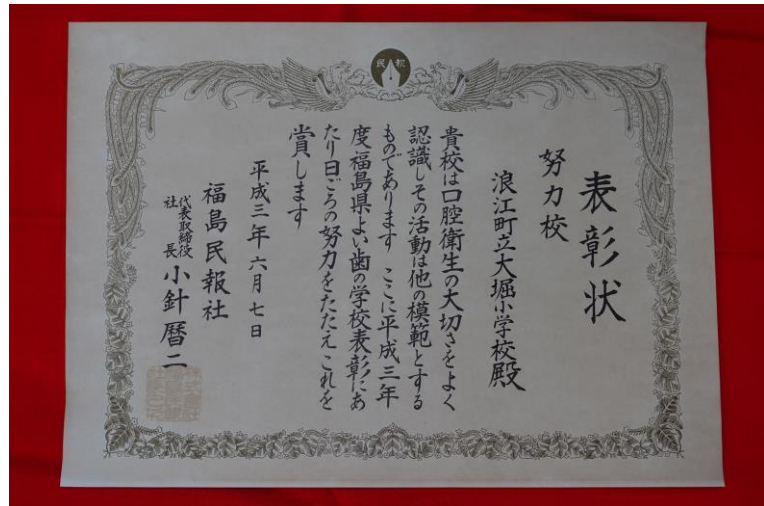 民報
表彰状
努力校
浪江町立大堀小学校殿
貴校は口腔衛生の大切さをよく
認識しその活動は他の模範とする
ものであります ここに平成三年
度福島県よい歯の学校表彰にあ
たり日ごろの努力をたたえこれを
賞します
平成三年六月七日
福島民報社
代表取締役
社長 小針暦二